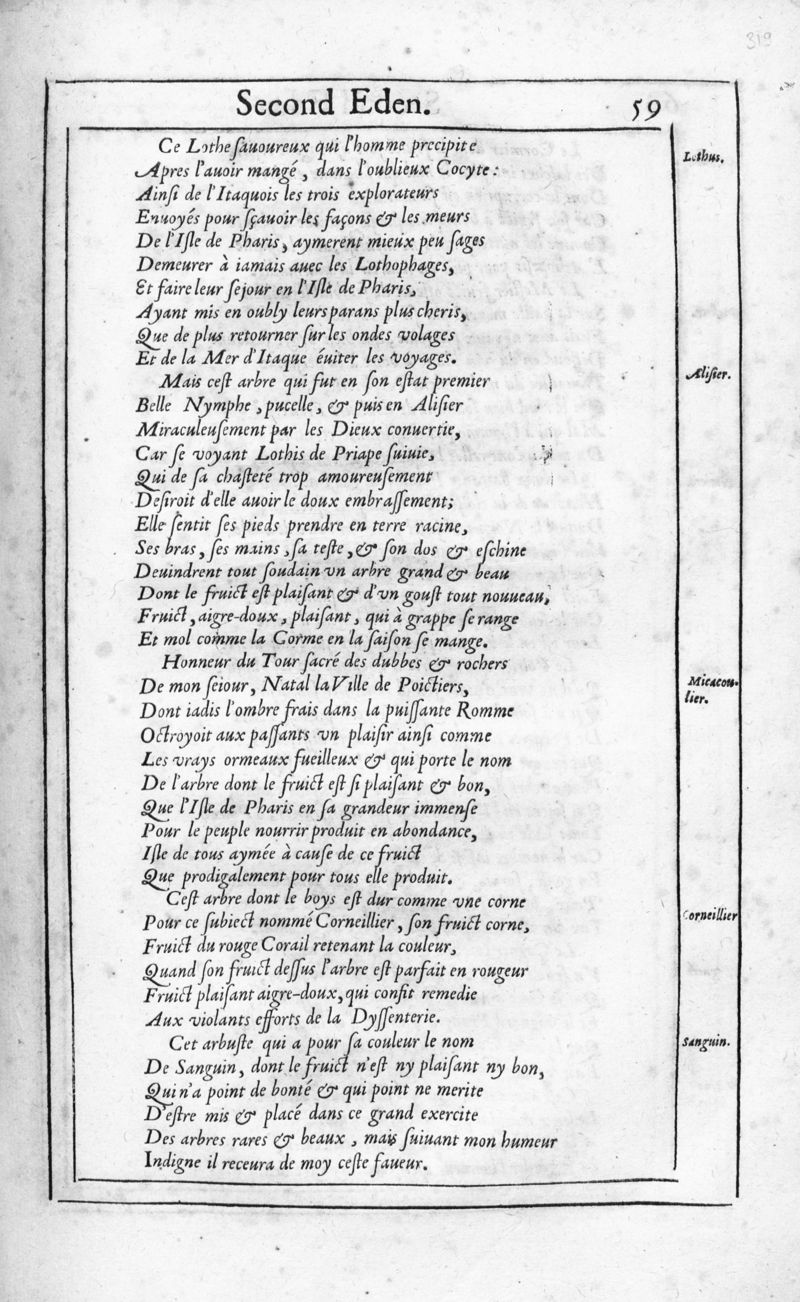 319
Second Eden. 59
Ce Lothe ſauoureux qui l'homme precipite
Lothus.
Apres l'auoir mangé, dans l'oublieux Cocyte:
Ainſi de l'Itaquois les trois explorateurs
Enuoyés pour ſçauoir les façons & les meurs
De l'Iſle de Pharis, aymerent mieux peu ſages
Demeurer à iamais auec les Lothophages,
Et faire leur ſejour en l'Iſle de Pharis,
Ayant mis en oubly leurs parans plus cheris,
Que de plus retourner ſur les ondes volages
Et de la Mer d'Itaque éuiter les voyages.
Mais ceſt arbre qui fut en ſon eſtat premier
Aliſier.
Belle Nymphe, pucelle, & puis en Aliſier
Miraculeuſement par les Dieux conuertie,
Car ſe voyant Lothis de Priape ſuiuie,
Qui de ſa chaſteté trop amoureuſement
Deſiroit d'elle auoir le doux embraſſement;
Elle ſentit ſes pieds prendre en terre racine,
Ses bras, ſes mains, ſa teſte, & ſon dos & eſchine
Deuindrent tout ſoudain vn arbre grand & beau
Dont le fruict eſt plaiſant & d'vn gouſt tout nouueau,
Fruict, aigre-doux, plaiſant, qui à grappe ſe range
Et mol comme la Corme en la ſaiſon ſe mange.
Honneur du Tour ſacré des dubbes & rochers
De mon ſeiour, Natal la Ville de Poictiers,
Micacou-
lier.
Dont iadis l'ombre frais dans la puiſſante Romme
Octroyoit aux paſſants vn plaiſir ainſi comme
Les vrays ormeaux fueilleux & qui porte le nom
De l'arbre dont le fruict eſt ſi plaiſant & bon,
Que l'Iſle de Pharis en ſa grandeur immenſe
Pour le peuple nourrir produit en abondance,
Iſle de tous aymée à cauſe de ce fruict
Que prodigalement pour tous elle produit.
Ceſt arbre dont le boys eſt dur comme vne corne
Corneillier
Pour ce ſubiect nommé Corneillier, ſon fruict corne,
Fruict du rouge Corail retenant la couleur,
Quand ſon fruict deſſus l'arbre eſt parfait en rougeur
Fruict plaiſant aigre-doux, qui conſit remedie
Aux violants efforts de la Dyſſenterie.
Cet arbuſte qui a pour ſa couleur le nom
Sanguin.
De Sanguin, dont le fruict n'eſt ny plaiſant ny bon,
Qui n'a point de bonté & qui point ne merite
D'eſtre mis & placé dans ce grand exercite
Des arbres rares & beaux, mais ſuiuant mon humeur
Indigne il receura de moy ceſte faueur.